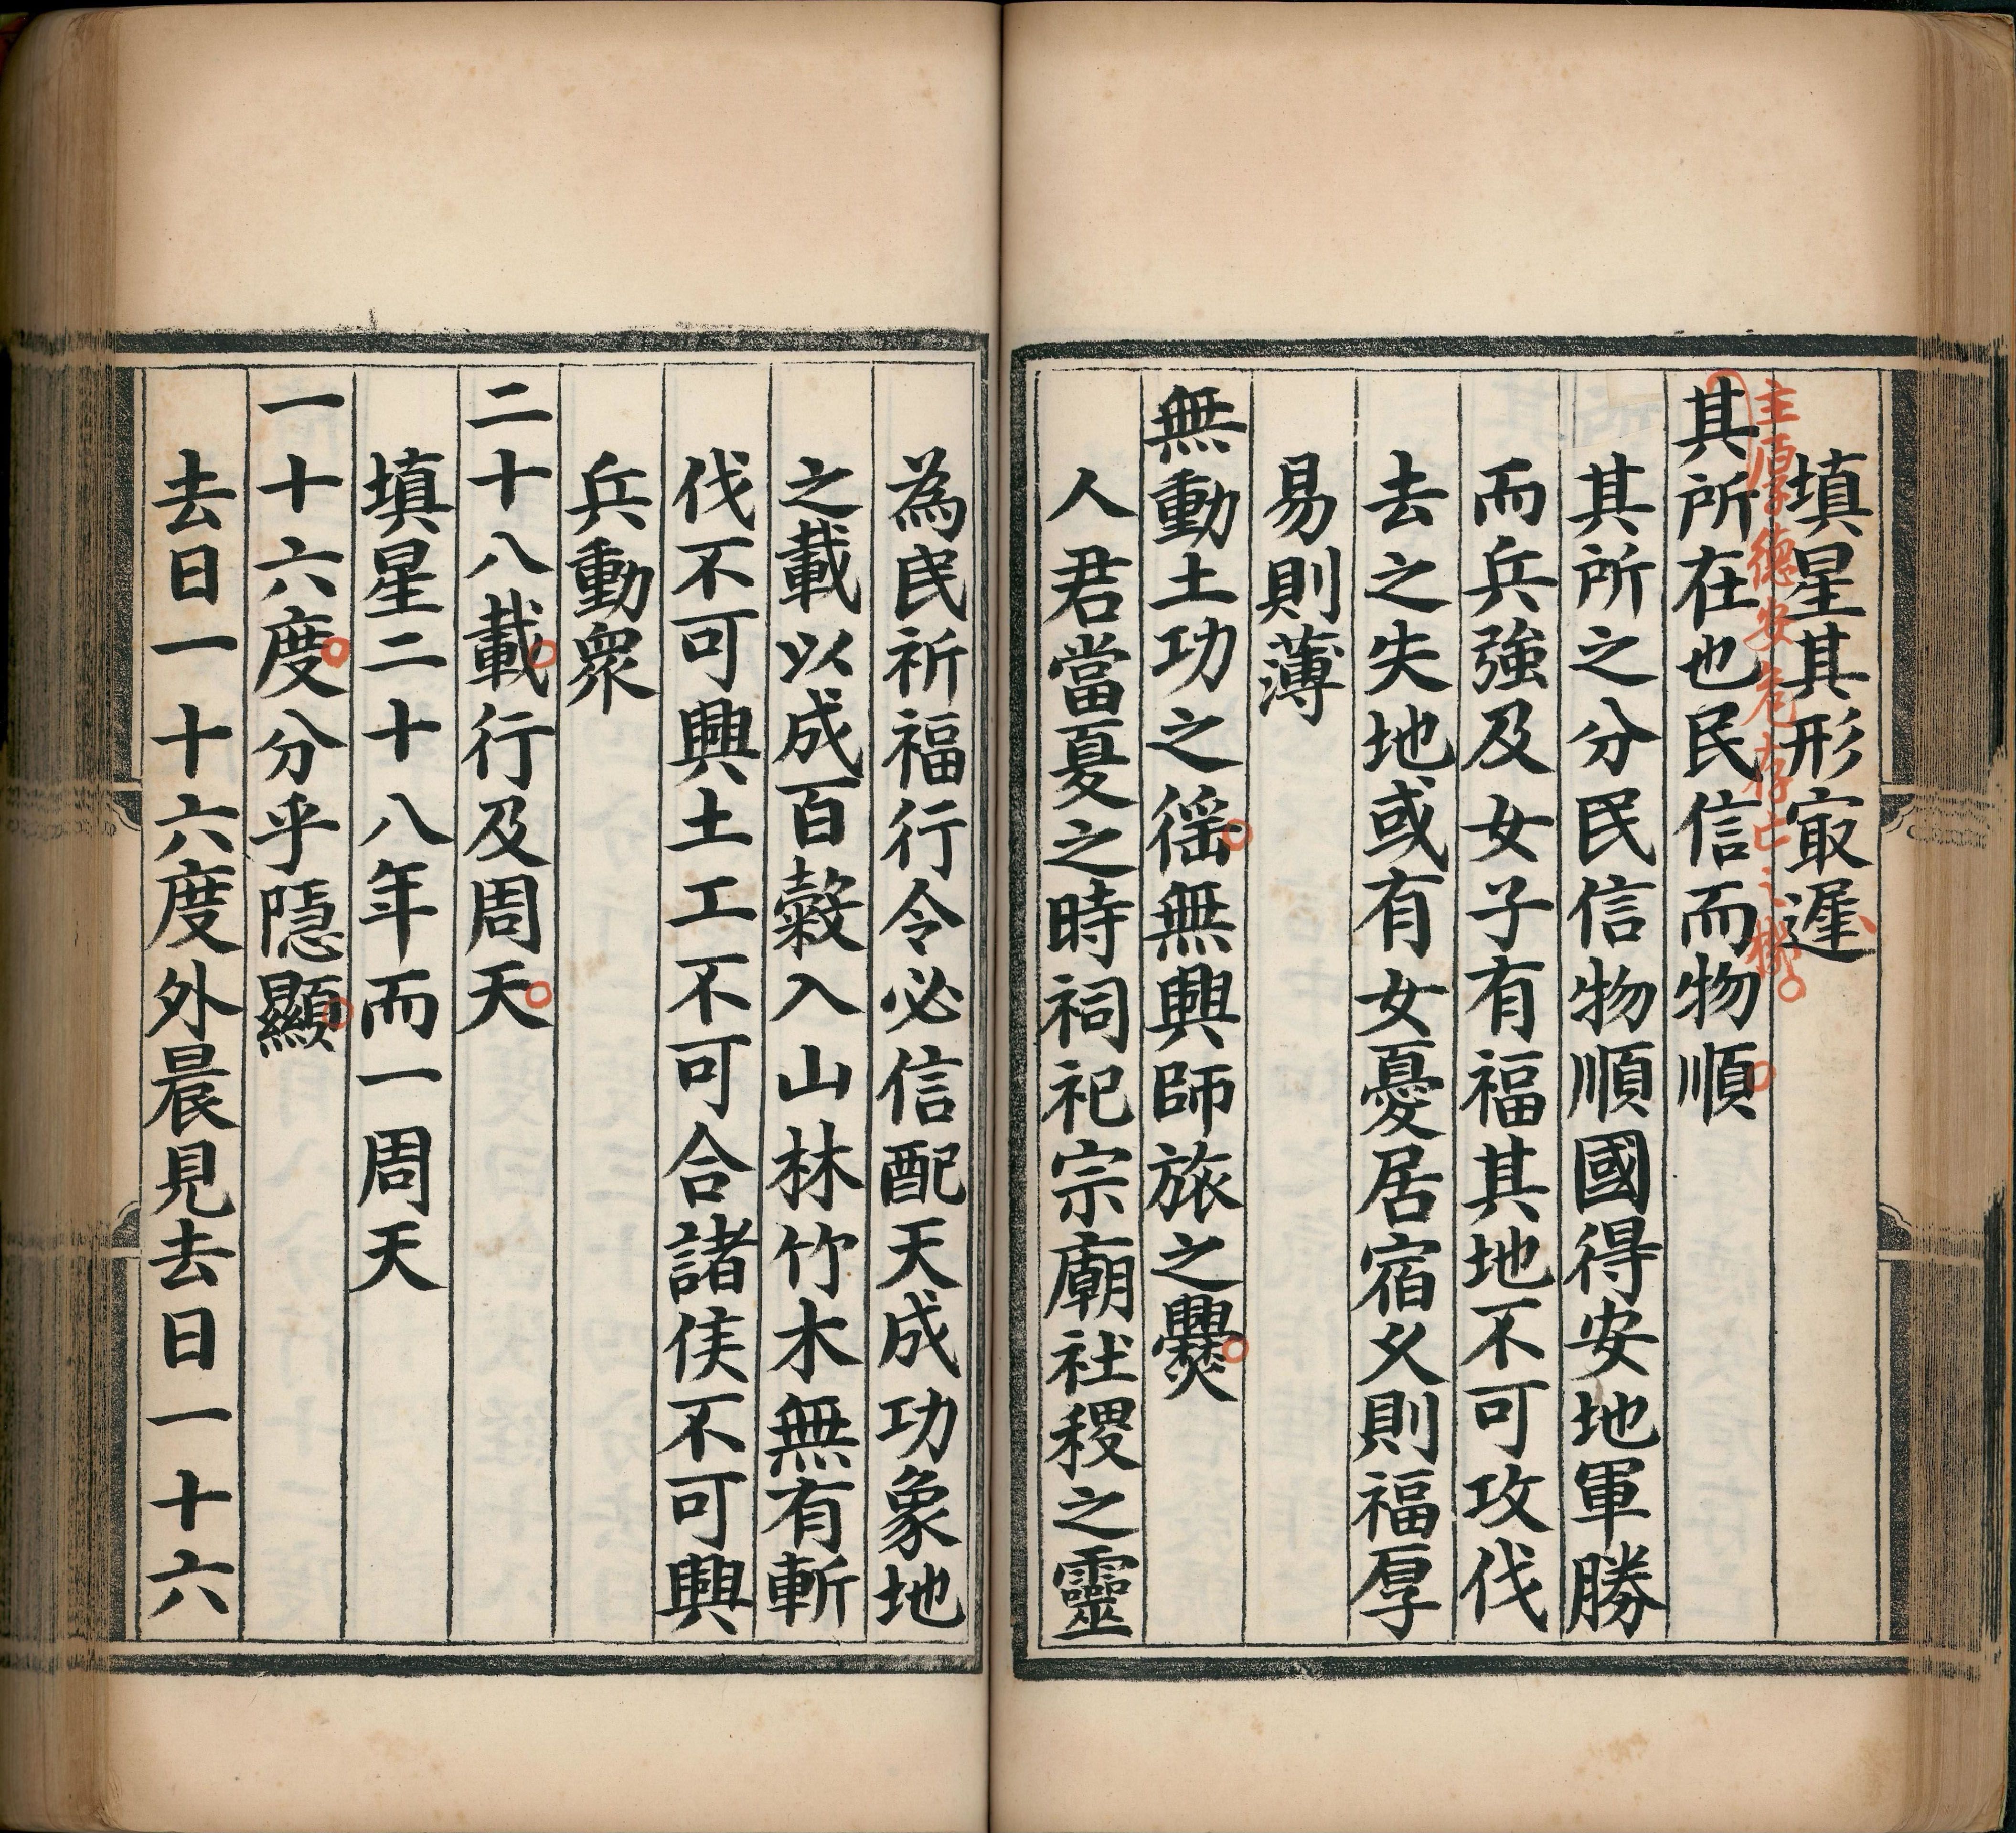 填星其形㝡遲
主厚德安危存亡之機
其所在也民信而物順
其所之分民信物順國得安地軍勝
而兵強及女子有福其地不可攻伐
去之失地或有女憂居宿乆則福厚
易則薄
無動土功之徭無興師旅之爨
人君當夏之時祠祀宗廟社稷之靈
為民祈福行令必信配天成功象地
之載以成百穀入山林竹木無有斬
伐不可興土工不可合諸侯不可興
兵動衆
二十八載行及周天
填星二十八年而一周天
一十六度分乎隱顯
去日一十六度外晨見去日一十六